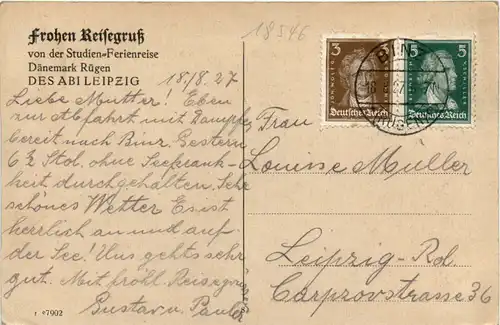 Frohen Reisegruß
von der Studien-Ferienreise
Dänemark Rügen
DES ABI LEIPZIG
18546
18./8.27
Liebe Mutter! Eben
zur Abfahrt mit Dampfer
bereit nach Binz. Gestern
6½ Std. ohne Seekrank-
heit durchgehalten. Sehr
schönes Wetter. Es ist
herrlich an und auf
der See! Uns geht's sehr
gut. Mit fröhl. Reisegrüßen
Gustav u. Paula
r 07902
3 3
Deutsches Reich
5 5
Deutsches Reich
BINZ
18
27
Frau
Louise Müller
Leipzig-Rd.
Carpzovstrasse 36